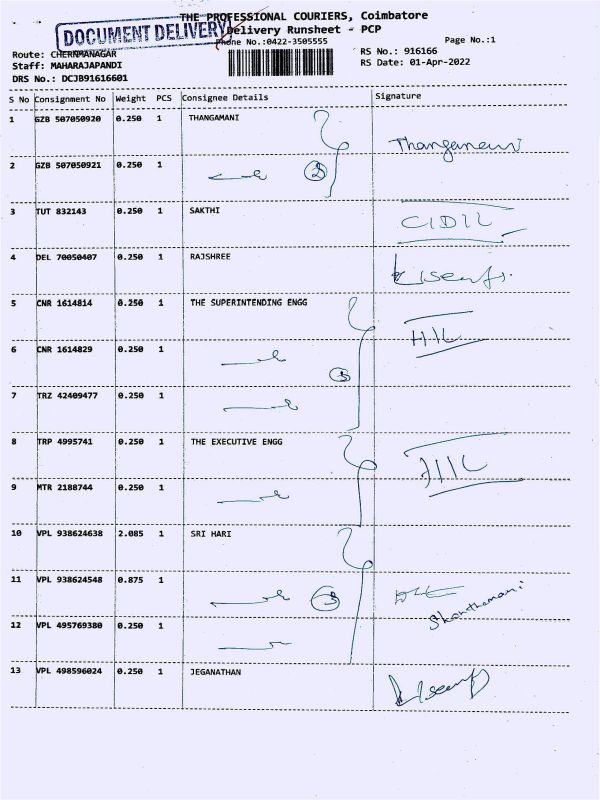 THE PROFESSIONAL COURIERS, Coimbatore
DOCUMENT DELIVERY
Delivery Runsheet - PCP
Phone No.:0422-3505555
Page No.:1
Route: CHERNMANAGAR
RS No.: 916166
Staff: MAHARAJAPANDI
RS Date: 01-Apr-2022
DRS No.: DCJB91616601
S No Consignment No Weight PCS Consignee Details Signature
1 GZB 507050920 0.250 1 THANGAMANI
2 GZB 507050921 0.250 1 2
3 TUT 832143 0.250 1 SAKTHI
4 DEL 70050407 0.250 1 RAJSHREE
5 CNR 1614814 0.250 1 THE SUPERINTENDING ENGG
6 CNR 1614829 0.250 1
7 TRZ 42409477 0.250 1
8 TRP 4995741 0.250 1 THE EXECUTIVE ENGG
9 MTR 2188744 0.250 1
10 VPL 938624638 2.085 1 SRI HARI
11 VPL 938624548 0.875 1 3
Shanthamani
12 VPL 495769380 0.250 1
13 VPL 498596024 0.250 1 JEGANATHAN